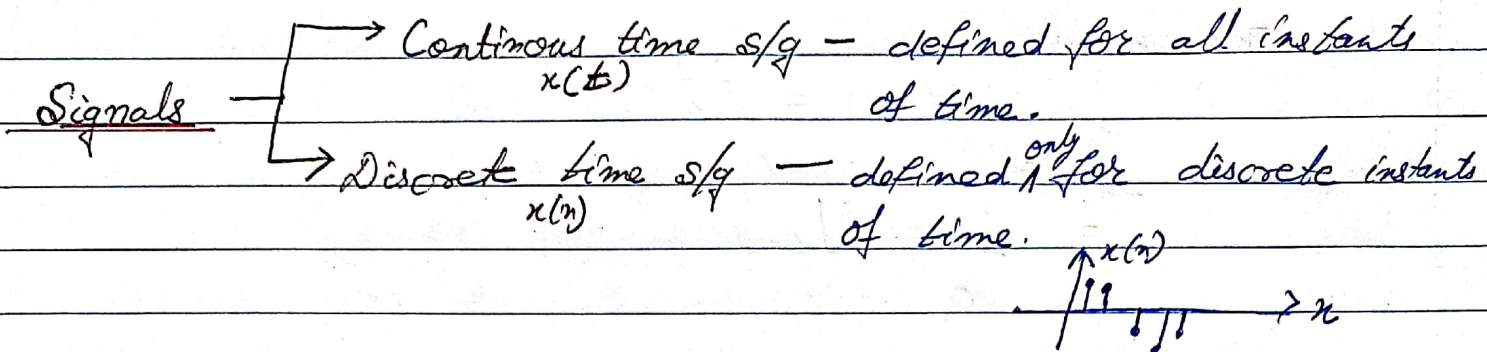 → Continous time s/g — defined for all instants
x(t) of time.
Signals
→ Discrete time s/g — defined only for discrete instants
x(n) of time.
x(n)
n